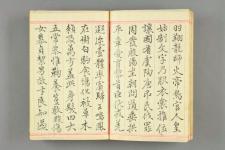 羽翔龍師火帝鳥官人皇
始制文字乃服衣裳推位
讓國有虞陶唐弔民伐罪
周發殷湯坐朝問道垂拱
平章愛育黎首臣伏戎羌
遐邇壹體率賓歸王鳴鳳
在樹白駒食場化被草木
賴及萬方蓋此身髮四大
五常恭惟鞠養豈敢毀傷
女慕貞絜男效才良知過